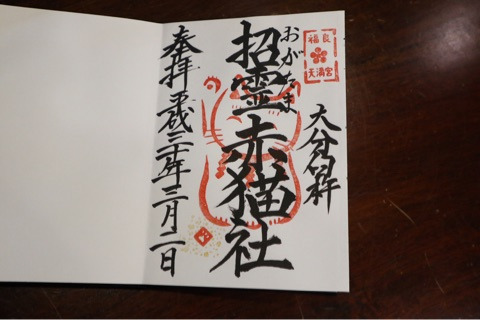 福良
天満宮
大分臼杵
おがたま
招霊赤猫社
奉拝 平成三十年三月二日